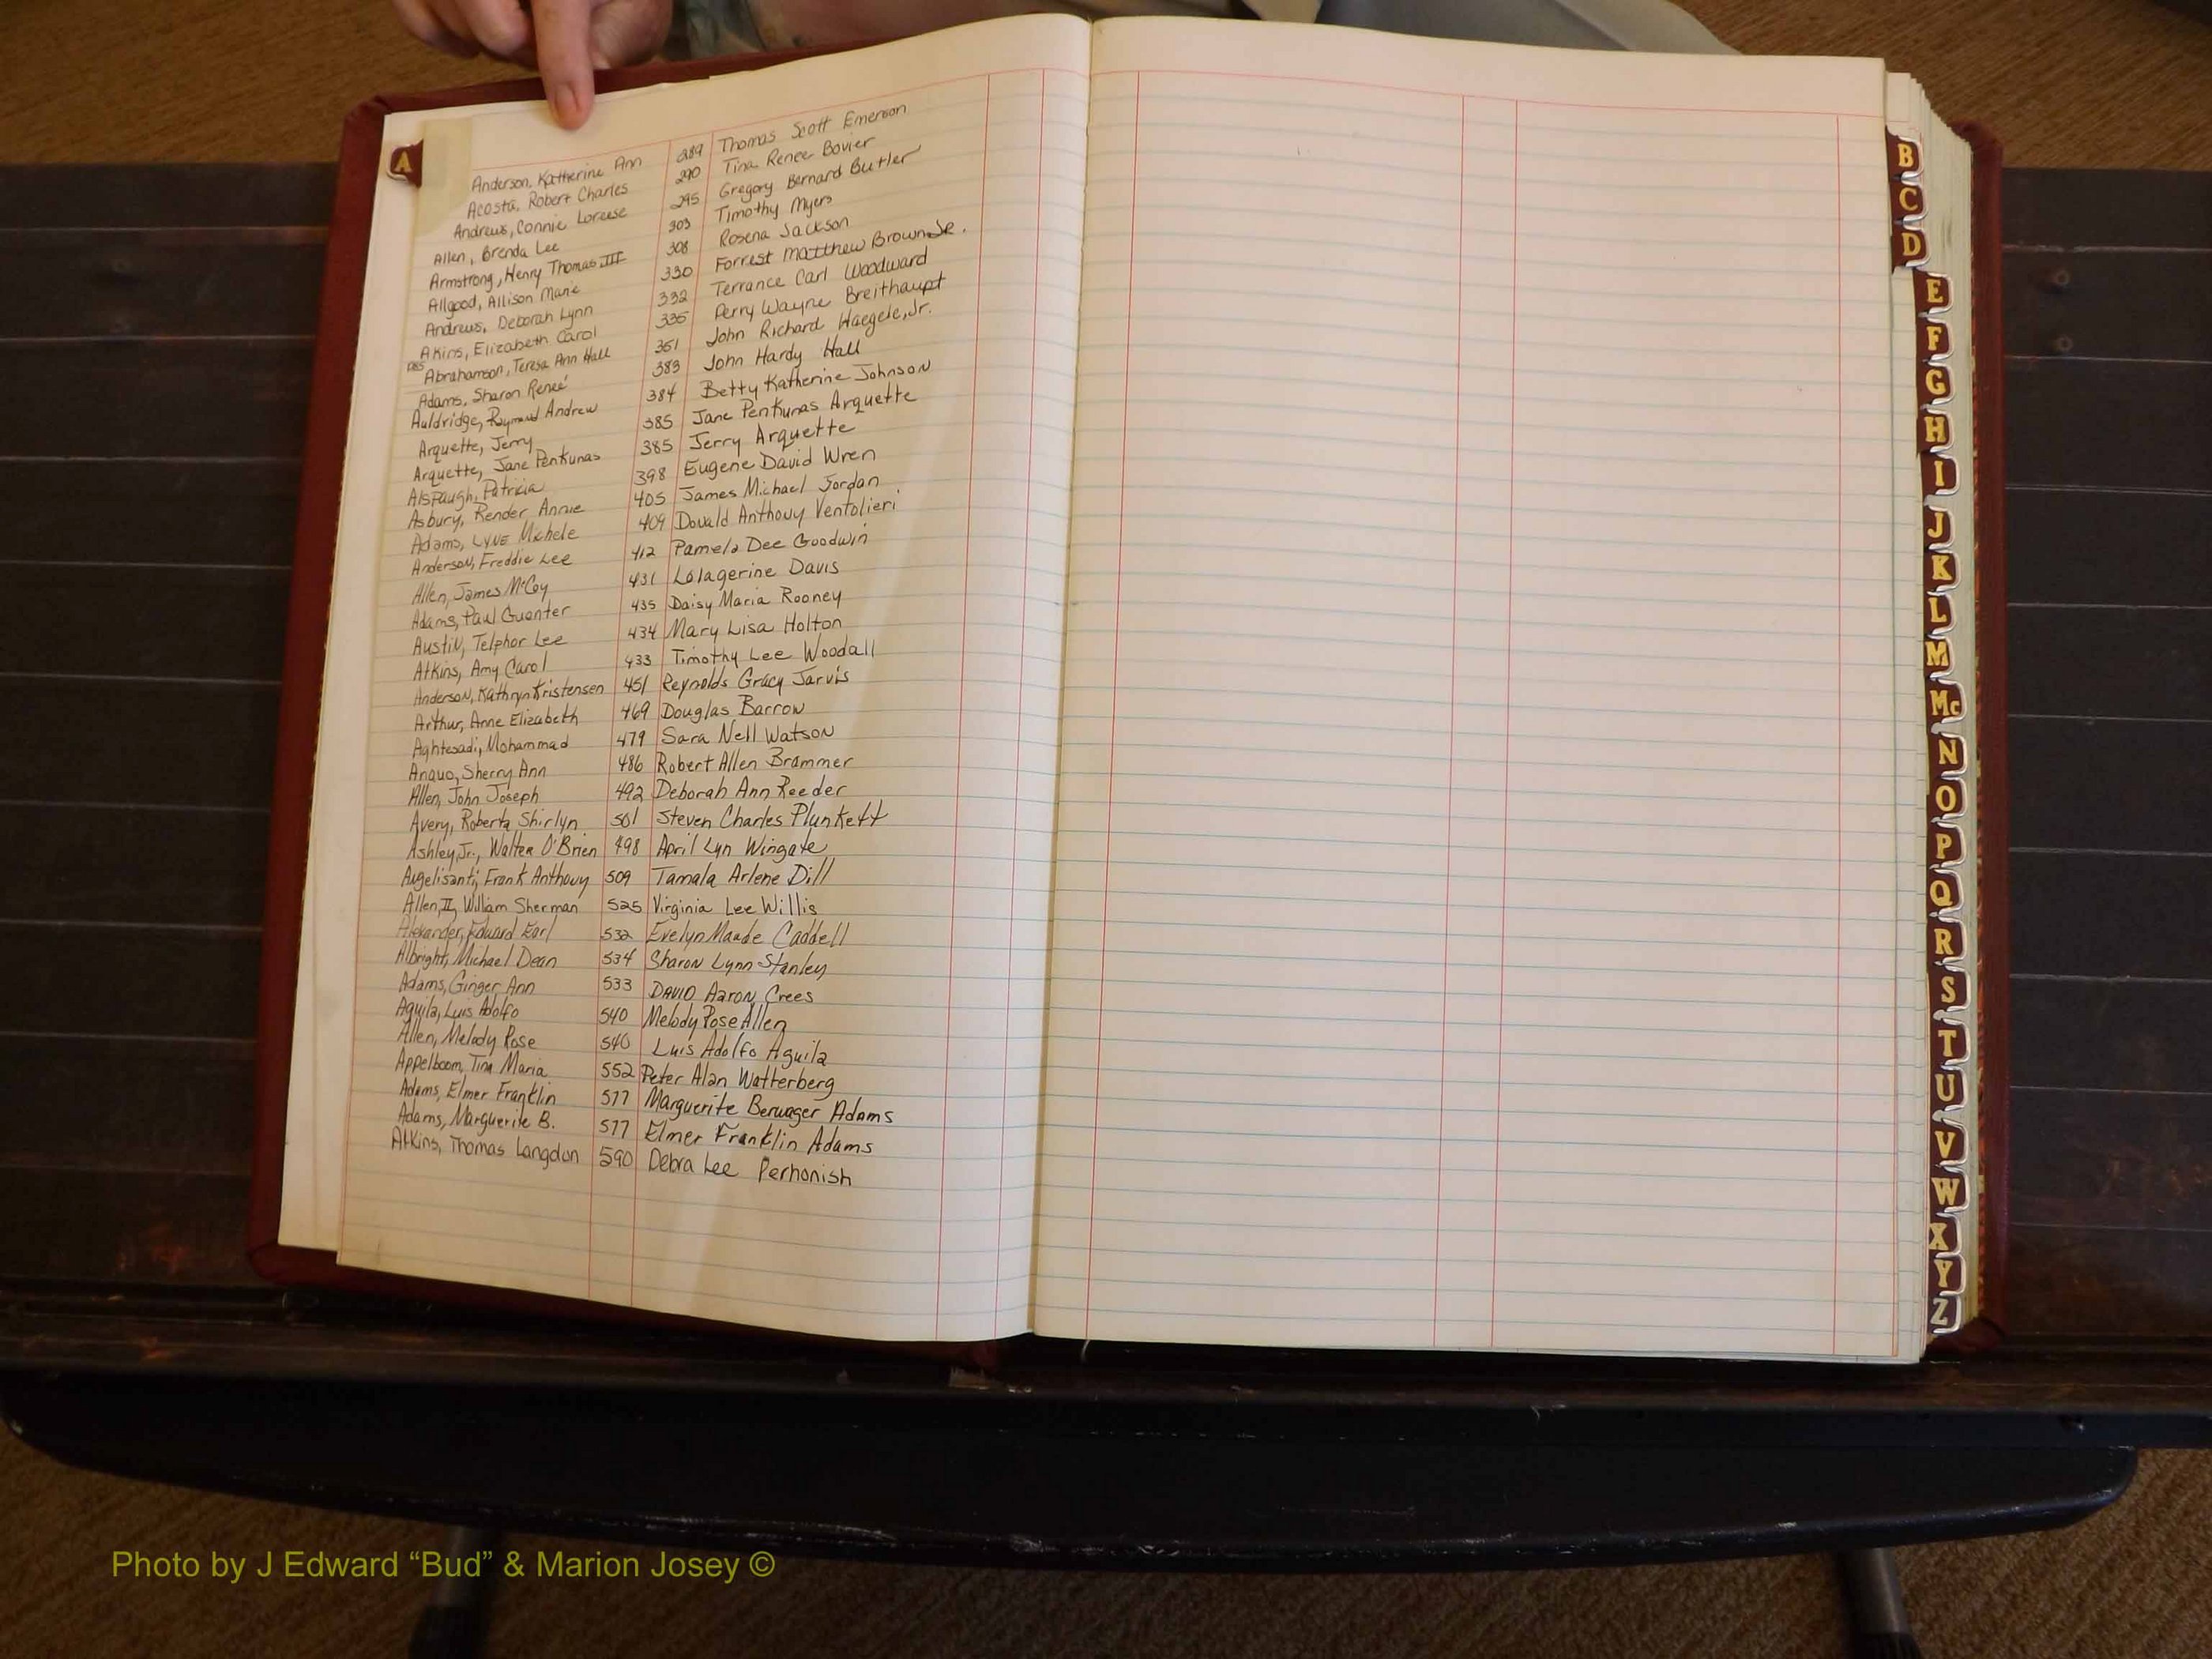 A
Anderson, Katherine Ann 289 Thomas Scott Emerson
Acosta, Robert Charles 290 Tina Renee Bovier
Andrews, Connie Loreese 295 Gregory Bernard Butler
Allen, Brenda Lee 303 Timothy Myers
Armstrong, Henry Thomas III 308 Rosena Jackson
Allgood, Allison Marie 330 Forrest Matthew Brown Jr.
Andrews, Deborah Lynn 332 Terrance Carl Woodward
Akins, Elizabeth Carol 335 Perry Wayne Breithaupt
Abrahamson, Teresa Ann Hall 361 John Richard Haegele, Jr.
Adams, Sharon Reneé 383 John Hardy Hall
Auldridge, Raymond Andrew 384 Betty Katherine Johnson
Arquette, Jerry 385 Jane Penkunas Arquette
Arquette, Jane Penkunas 385 Jerry Arquette
Alspaugh, Patricia 398 Eugene David Wren
Asbury, Render Annie 405 James Michael Jordan
Adams, Lyne Michele 409 Donald Anthony Ventolieri
Anderson, Freddie Lee 412 Pamela Dee Goodwin
Allen, James McCoy 431 Lolagerine Davis
Adams, Paul Guenter 435 Daisy Maria Rooney
Austin, Telphor Lee 434 Mary Lisa Holton
Atkins, Amy Carol 433 Timothy Lee Woodall
Anderson, Kathryn Kristensen 451 Reynolds Gracy Jarvis
Arthur, Anne Elizabeth 469 Douglas Barrow
Aghtesadi, Mohammad 479 Sara Nell Watson
Anauo, Sherry Ann 486 Robert Allen Brammer
Allen, John Joseph 492 Deborah Ann Reeder
Avery, Roberta Shirlyn 501 Steven Charles Plunkett
Ashley, Jr., Walter O'Brien 498 April Lyn Wingate
Angelisanti, Frank Anthony 509 Tamala Arlene Dill
Allen, II, William Sherman 525 Virginia Lee Willis
Alexander, Edward Earl 532 Evelyn Maude Caddell
Albright, Michael Dean 534 Sharon Lynn Stanley
Adams, Ginger Ann 533 David Aaron Crees
Aguila, Luis Adolfo 540 Melody Rose Allen
Allen, Melody Rose 540 Luis Adolfo Aguila
Appelboom, Tina Maria 552 Peter Alan Watterberg
Adams, Elmer Franklin 577 Marguerite Berwager Adams
Adams, Marguerite B. 577 Elmer Franklin Adams
Atkins, Thomas Langdon 590 Debra Lee Perhonish
B
C
D
E
F
G
H
I
J
K
L
M
Mc
N
O
P
Q
R
S
T
U
V
W
X
Y
Z
Photo by J Edward “Bud” & Marion Josey ©